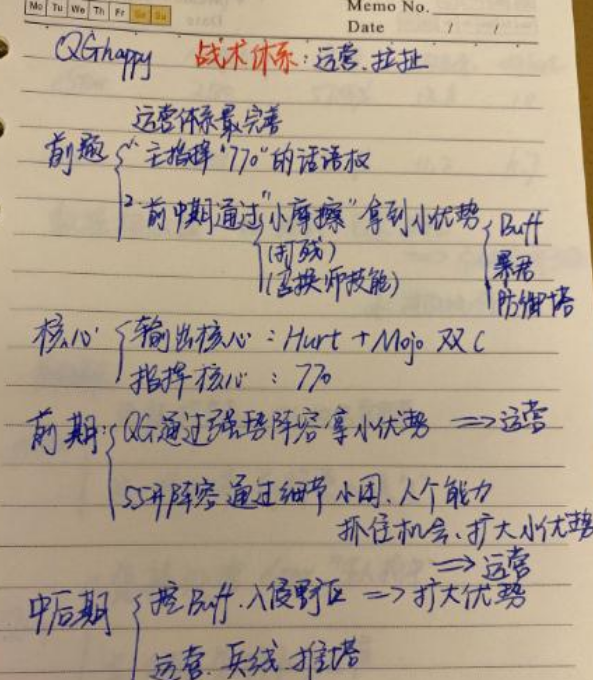 Mo Tu We Th Fr Sa Su
Memo No.
Date / /
QGhappy 战术体系:运营、拉扯
运营体系最完善
前题 1. 主指挥“770”的话语权
2. 前中期通过“小摩擦”拿到小优势 Buff
(打残) 暴君
(召换师技能) 防御塔
核心 输出核心:Hurt + Mojo 双C
指挥核心:770
前期: QG通过强势阵容拿小优势 => 运营
55开阵容通过细节小团、人个能力
抓住机会、扩大小优势
=> 运营
中后期 控Buff、入侵野区 => 扩大优势
运营、兵线、推塔